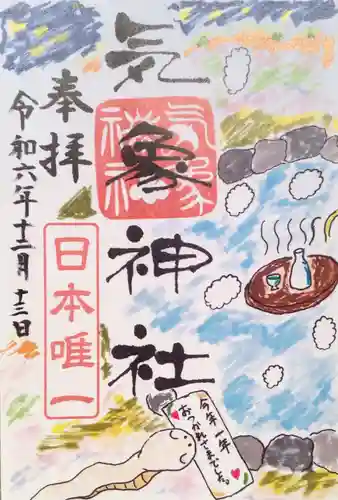 気象神社
気象
神社
奉拝
令和六年十二月十三日
日本唯一
今年一年
おつかれさまでした。